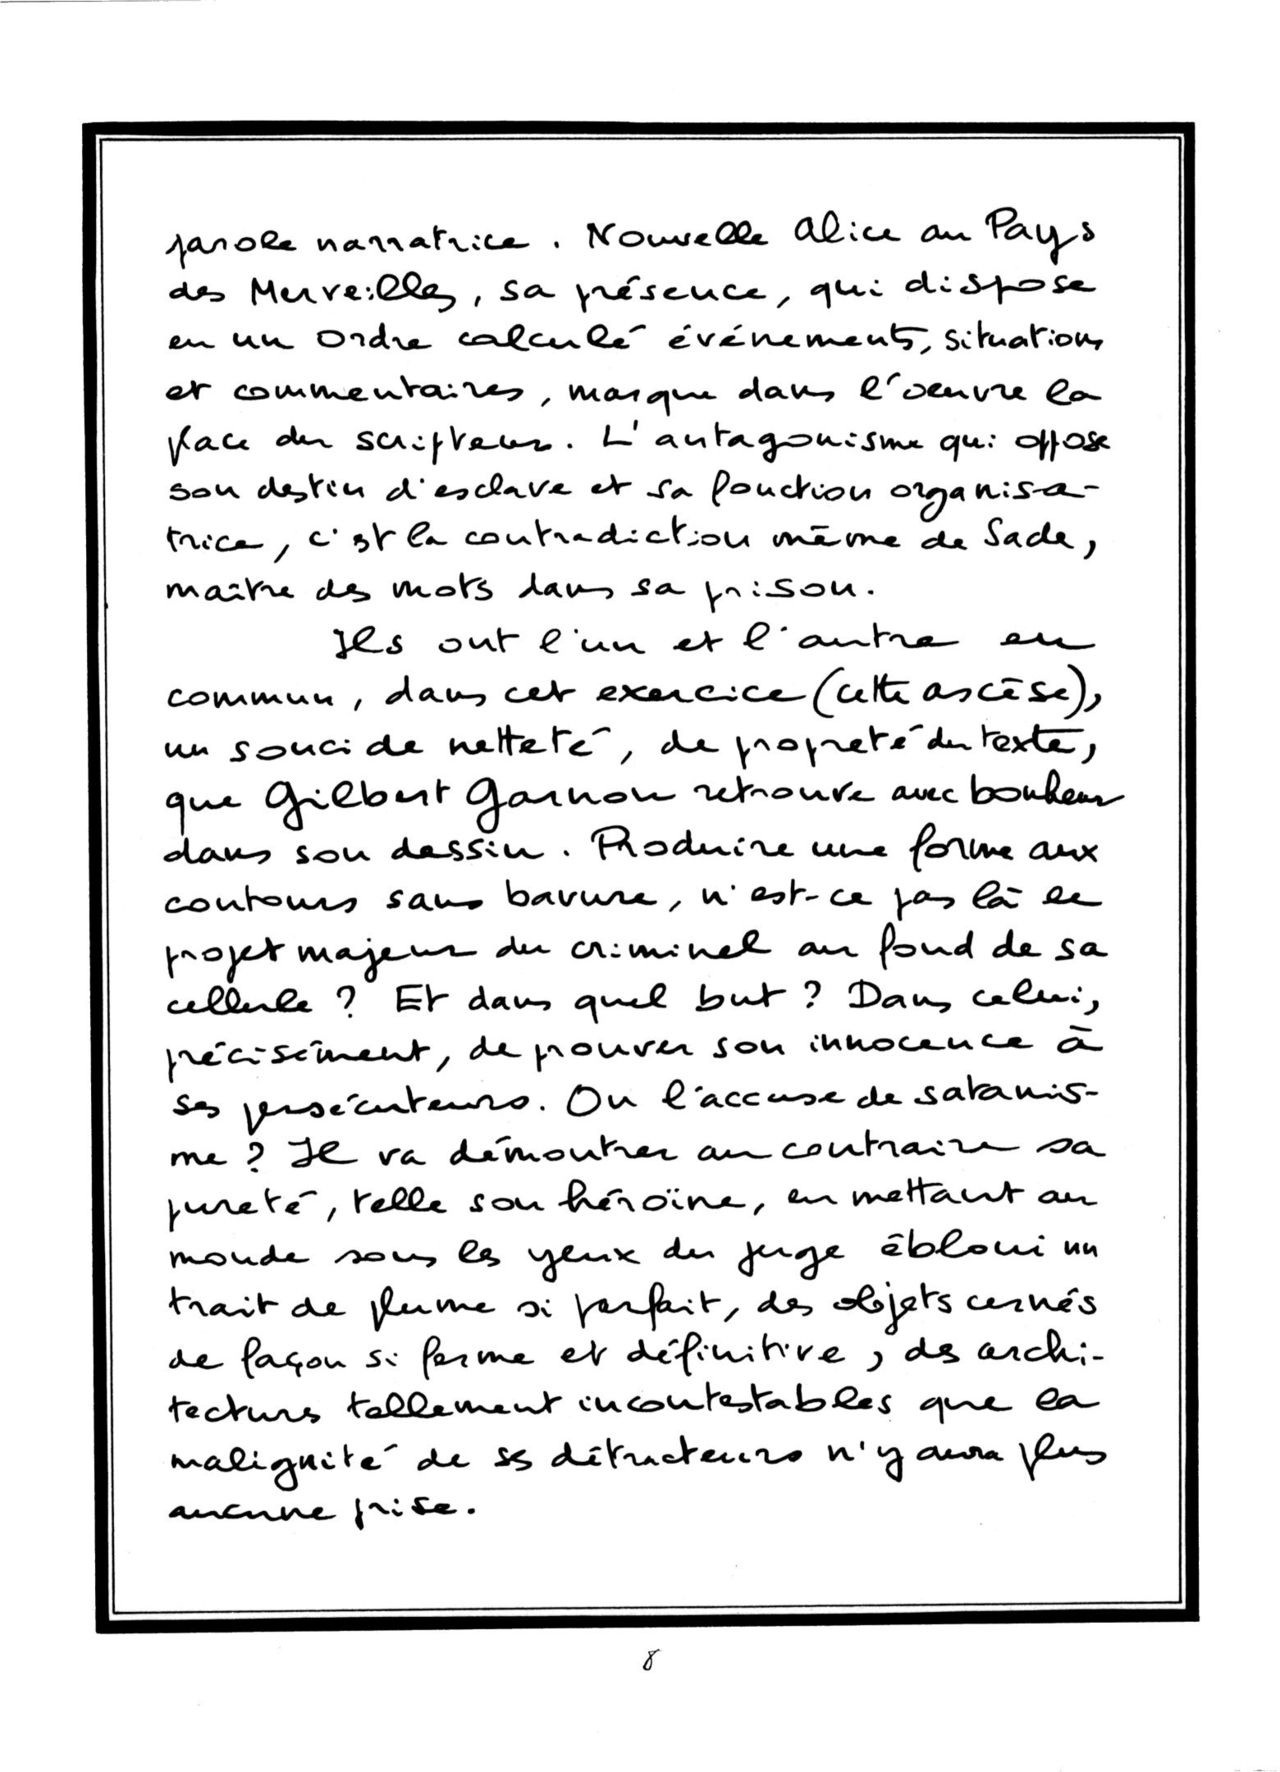 parole narratrice. Nouvelle Alice au Pays
des Merveilles, sa présence, qui dispose
en un ordre calculé événements, situations
et commentaires, marque dans l'oeuvre la
place du scripteur. L'antagonisme qui oppose
son destin d'esclave et sa fonction organisa-
trice, c'est la contradiction même de Sade,
maître des mots dans sa prison.
Ils ont l'un et l'autre en
commun, dans cet exercice (cette ascèse),
un souci de netteté, de propreté du texte,
que Gilbert Garnon retrouve avec bonheur
dans son dessin. Produire une forme aux
contours sans bavure, n'est-ce pas là le
projet majeur du criminel au fond de sa
cellule ? Et dans quel but ? Dans celui,
précisément, de prouver son innocence à
ses persécuteurs. On l'accuse de satanis-
me ? Il va démontrer au contraire sa
pureté, telle son héroïne, en mettant au
monde sous les yeux du juge ébloui un
trait de plume si parfait, des objets cernés
de façon si ferme et définitive, des archi-
tectures tellement incontestables que la
malignité de ses détracteurs n'y aura plus
aucune prise.
8